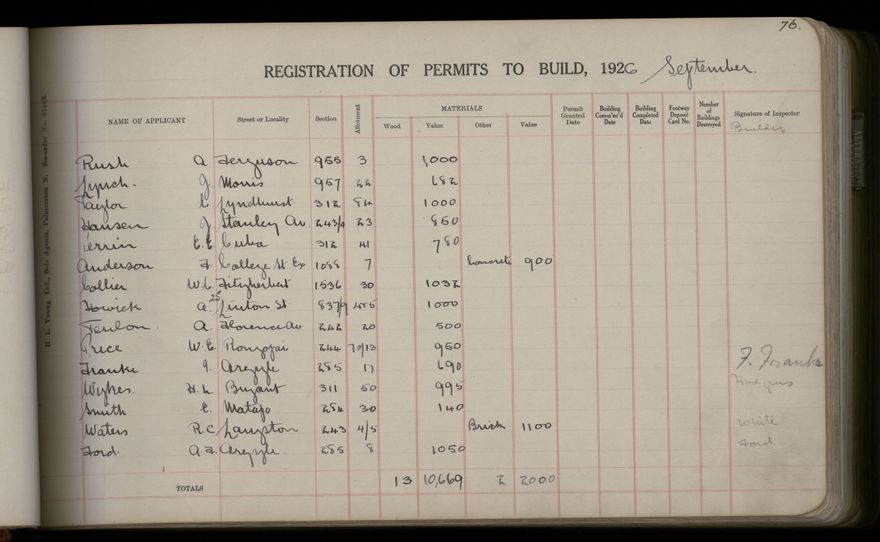 76.
REGISTRATION OF PERMITS TO BUILD, 1926 September.
NAME OF APPLICANT Street or Locality Section Allotment MATERIALS Wood Value Other Value Permit Granted Date Building Comm'nc'd Date Building Completed Date Footway Deposit Card No. Number of Buildings Destroyed Signature of Inspector
Builder
Rush A Ferguson 955 3 1,000
Lynch. J. Morris 957 22 682
Taylor L Lyndhurst 312 84 1000
Hansen J Stanley Av 243/9 23 850
Perrin E.E. Cuba 312 41 780
Anderson F College St Ex 1088 7 Concrete 900
Collier W.C. Fitzherbert 1536 30 1032
Howick A. 25 Linton St 837/9 455 1000
Teulon. A. Florence Av 242 20 500
Price W.E. Rongopai 244 70/13 950
Franke F. Argyle 285 17 690 F. Franke
Wykes. H.L Bryant 311 50 995 Hodgins
Smith E. Matapo 284 30 140
Waters R.C. Langston 243 4/5 Brick 1100 White
Ford. A.F. Argyle 285 8 1050 Ford
TOTALS 13 10,669 2 2000
H. L. Young Ltd., Sole Agents, Palmerston N. Re-order No.
ALTERATIONS